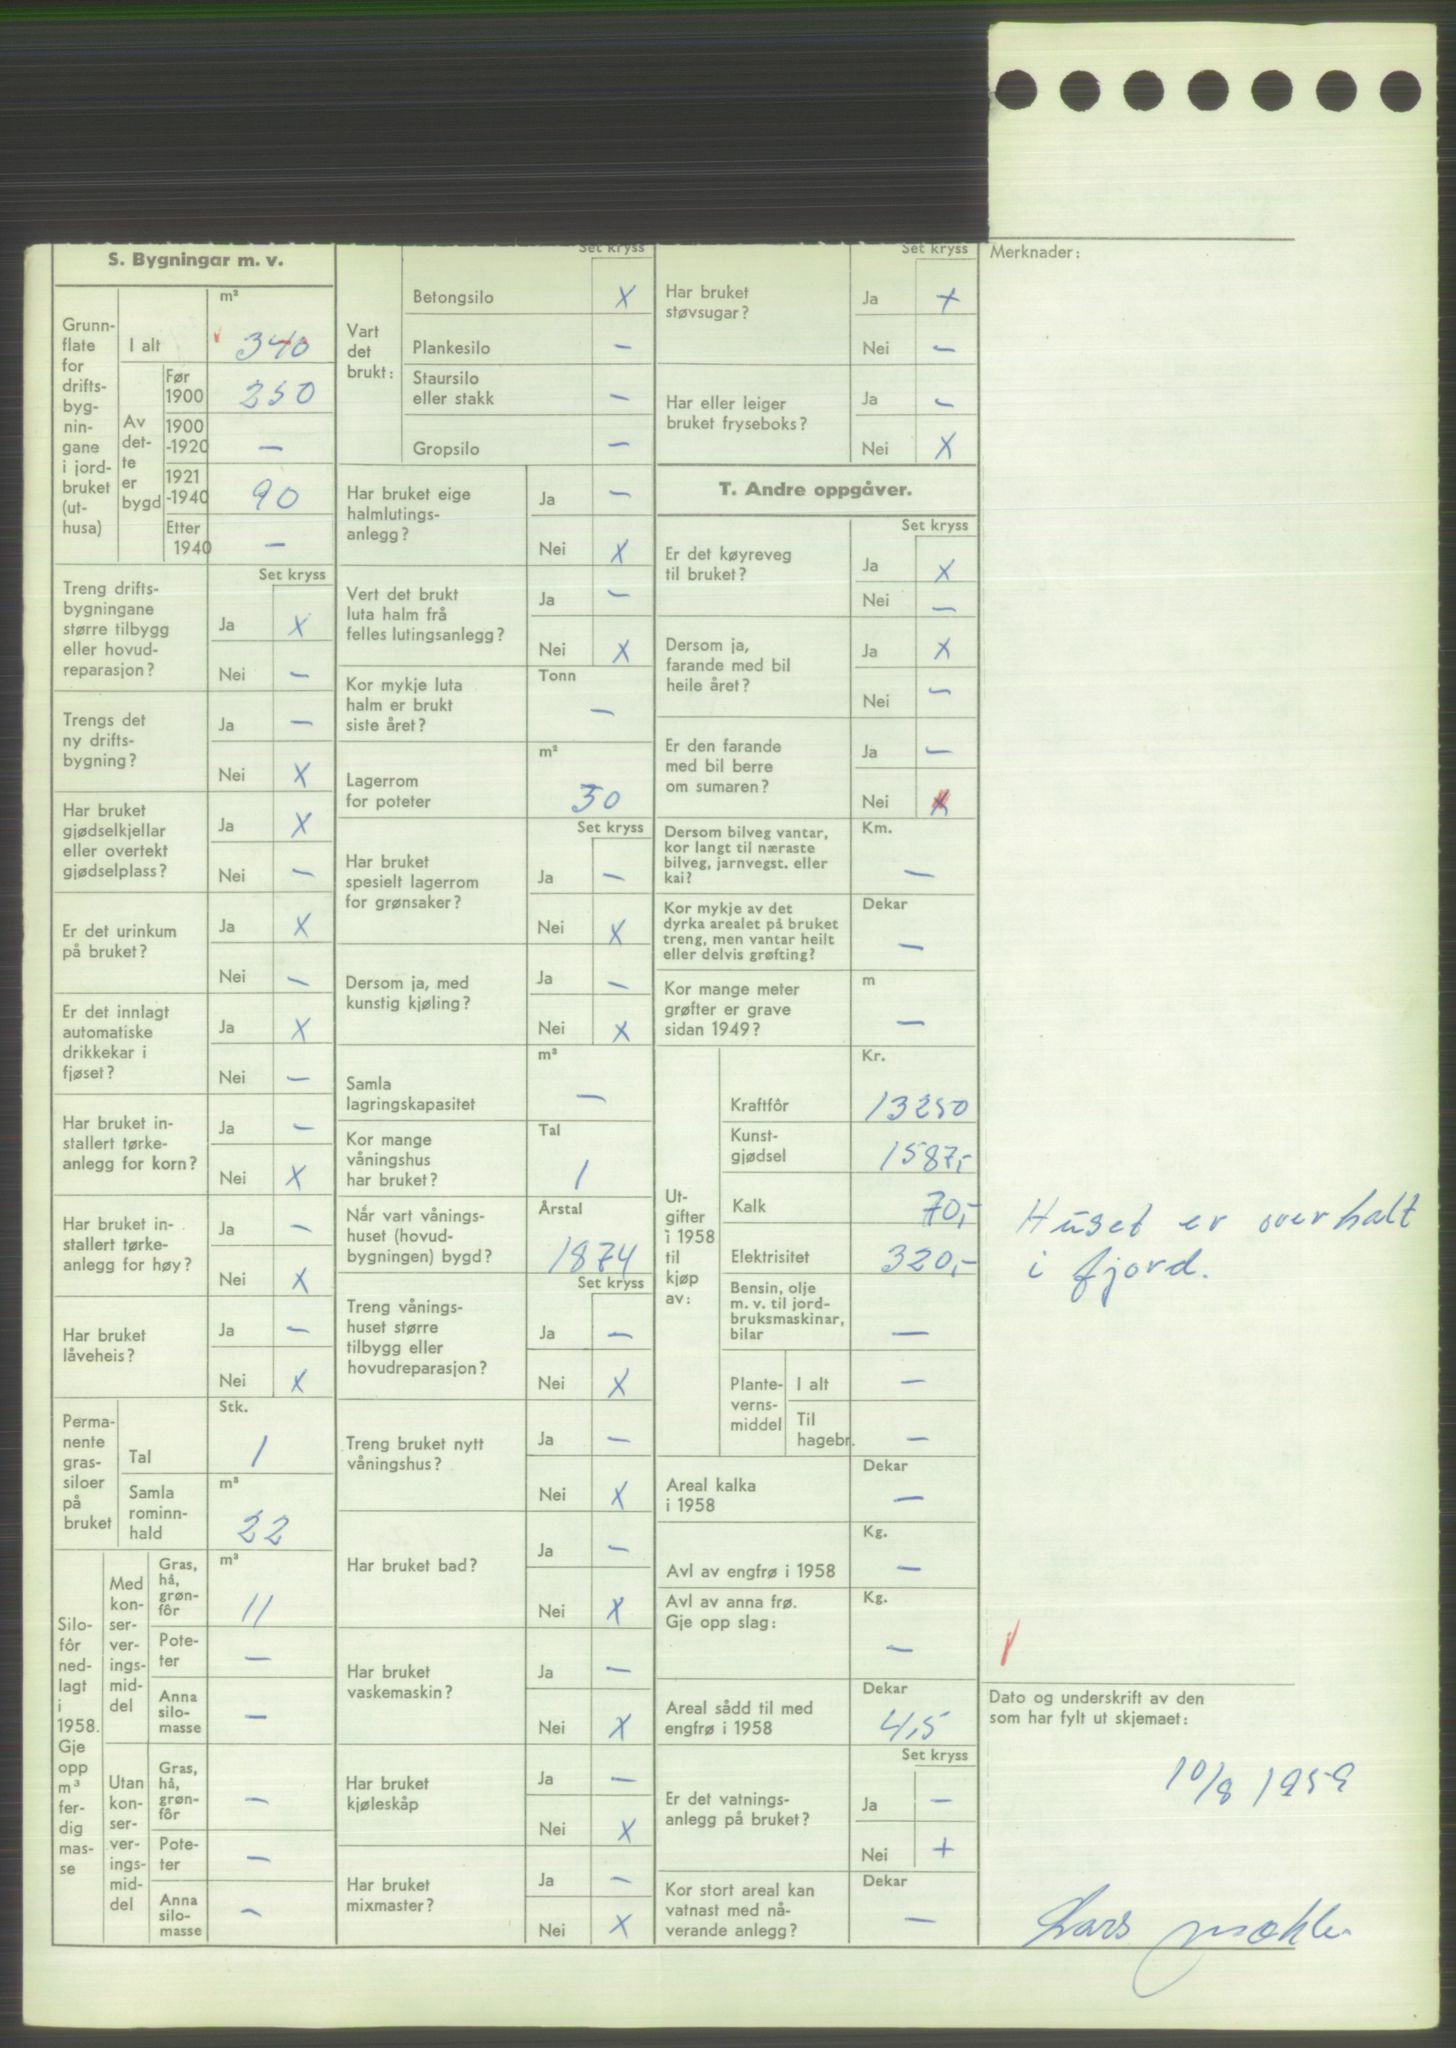 S. Bygningar m. v.
Grunn-
flate
for
drifts-
byg-
nin-
gane
i jord-
bruket
(ut-
husa)
m²
I alt
340
Av
det-
te
er
bygd
Før
1900
250
1900
-1920
—
1921
-1940
90
Etter
1940
—
Set kryss
Treng drifts-
bygningane
større tilbygg
eller hovud-
reparasjon?
Ja X
Nei —
Trengs det
ny drifts-
bygning?
Ja —
Nei X
Har bruket
gjødselkjellar
eller overtekt
gjødselplass?
Ja X
Nei —
Er det urinkum
på bruket?
Ja X
Nei —
Er det innlagt
automatiske
drikkekar i
fjøset?
Ja X
Nei —
Har bruket in-
stallert tørke-
anlegg for korn?
Ja —
Nei X
Har bruket in-
stallert tørke-
anlegg for høy?
Ja —
Nei X
Har bruket
låveheis?
Ja —
Nei X
Perma-
nente
gras-
siloer
på
bruket
Stk.
Tal
1
m³
Samla
rominn-
hald
22
Silo-
fôr
ned-
lagt
i
1958.
Gje
opp
m³
fer-
dig
mas-
se
Med
kon-
ser-
ver-
ings-
mid-
del
m³
Gras,
hå,
grøn-
fôr
11
Pote-
ter
—
Anna
silo-
masse
—
Utan
kon-
ser-
ver-
ings-
mid-
del
Gras,
hå,
grøn-
fôr
—
Pote-
ter
—
Anna
silo-
masse
—
Set kryss
Vart
det
brukt:
Betongsilo X
Plankesilo —
Staursilo
eller stakk —
Gropsilo —
Har bruket eige
halmlutings-
anlegg?
Ja —
Nei X
Vert det brukt
luta halm frå
felles lutingsanlegg?
Ja —
Nei X
Tonn
Kor mykje luta
halm er brukt
siste året?
—
m²
Lagerrom
for poteter
30
Set kryss
Har bruket
spesielt lagerrom
for grønsaker?
Ja —
Nei X
Dersom ja, med
kunstig kjøling?
Ja —
Nei X
m³
Samla
lagringskapasitet
—
Tal
Kor mange
våningshus
har bruket?
1
Årstal
Når vart vånings-
huset (hovud-
bygningen) bygd?
1874
Set kryss
Treng vånings-
huset større
tilbygg eller
hovudreparasjon?
Ja —
Nei X
Treng bruket nytt
våningshus?
Ja —
Nei X
Har bruket bad?
Ja —
Nei X
Har bruket
vaskemaskin?
Ja —
Nei X
Har bruket
kjøleskåp
Ja —
Nei X
Har bruket
mixmaster?
Ja —
Nei X
Set kryss
Har bruket
støvsugar?
Ja +
Nei —
Har eller leiger
bruket fryseboks?
Ja —
Nei X
T. Andre oppgåver.
Set kryss
Er det køyreveg
til bruket?
Ja X
Nei —
Dersom ja,
farande med bil
heile året?
Ja X
Nei —
Er den farande
med bil berre
om sumaren?
Ja —
Nei X
Km.
Dersom bilveg vantar,
kor langt til næraste
bilveg, jarnvegst. eller
kai?
—
Dekar
Kor mykje av det
dyrka arealet på bruket
treng, men vantar heilt
eller delvis grøfting?
—
m
Kor mange meter
grøfter er grave
sidan 1949?
—
Kr.
Ut-
gifter
i 1958
til
kjøp
av:
Kraftfôr
13250
Kunst-
gjødsel
1587,-
Kalk
70,-
Elektrisitet
320,-
Bensin, olje
m. v. til jord-
bruksmaskinar,
bilar
—
Plante-
verns-
middel
I alt
—
Til
hagebr.
—
Dekar
Areal kalka
i 1958
—
Kg.
Avl av engfrø i 1958
—
Kg.
Avl av anna frø.
Gje opp slag:
—
Dekar
Areal sådd til med
engfrø i 1958
4,5
Set kryss
Er det vatnings-
anlegg på bruket?
Ja —
Nei +
Dekar
Kor stort areal kan
vatnast med nå-
verande anlegg?
—
Merknader:
Huset er overhalt
i fjord.
Dato og underskrift av den
som har fylt ut skjemaet:
10/8 1959
Lars